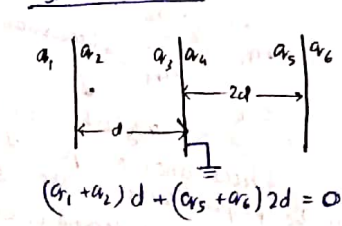 q₁ q₂ q₃ q₄ q₅ q₆
2d
d
(q₁ + q₂) d + (q₅ + q₆) 2d = 0